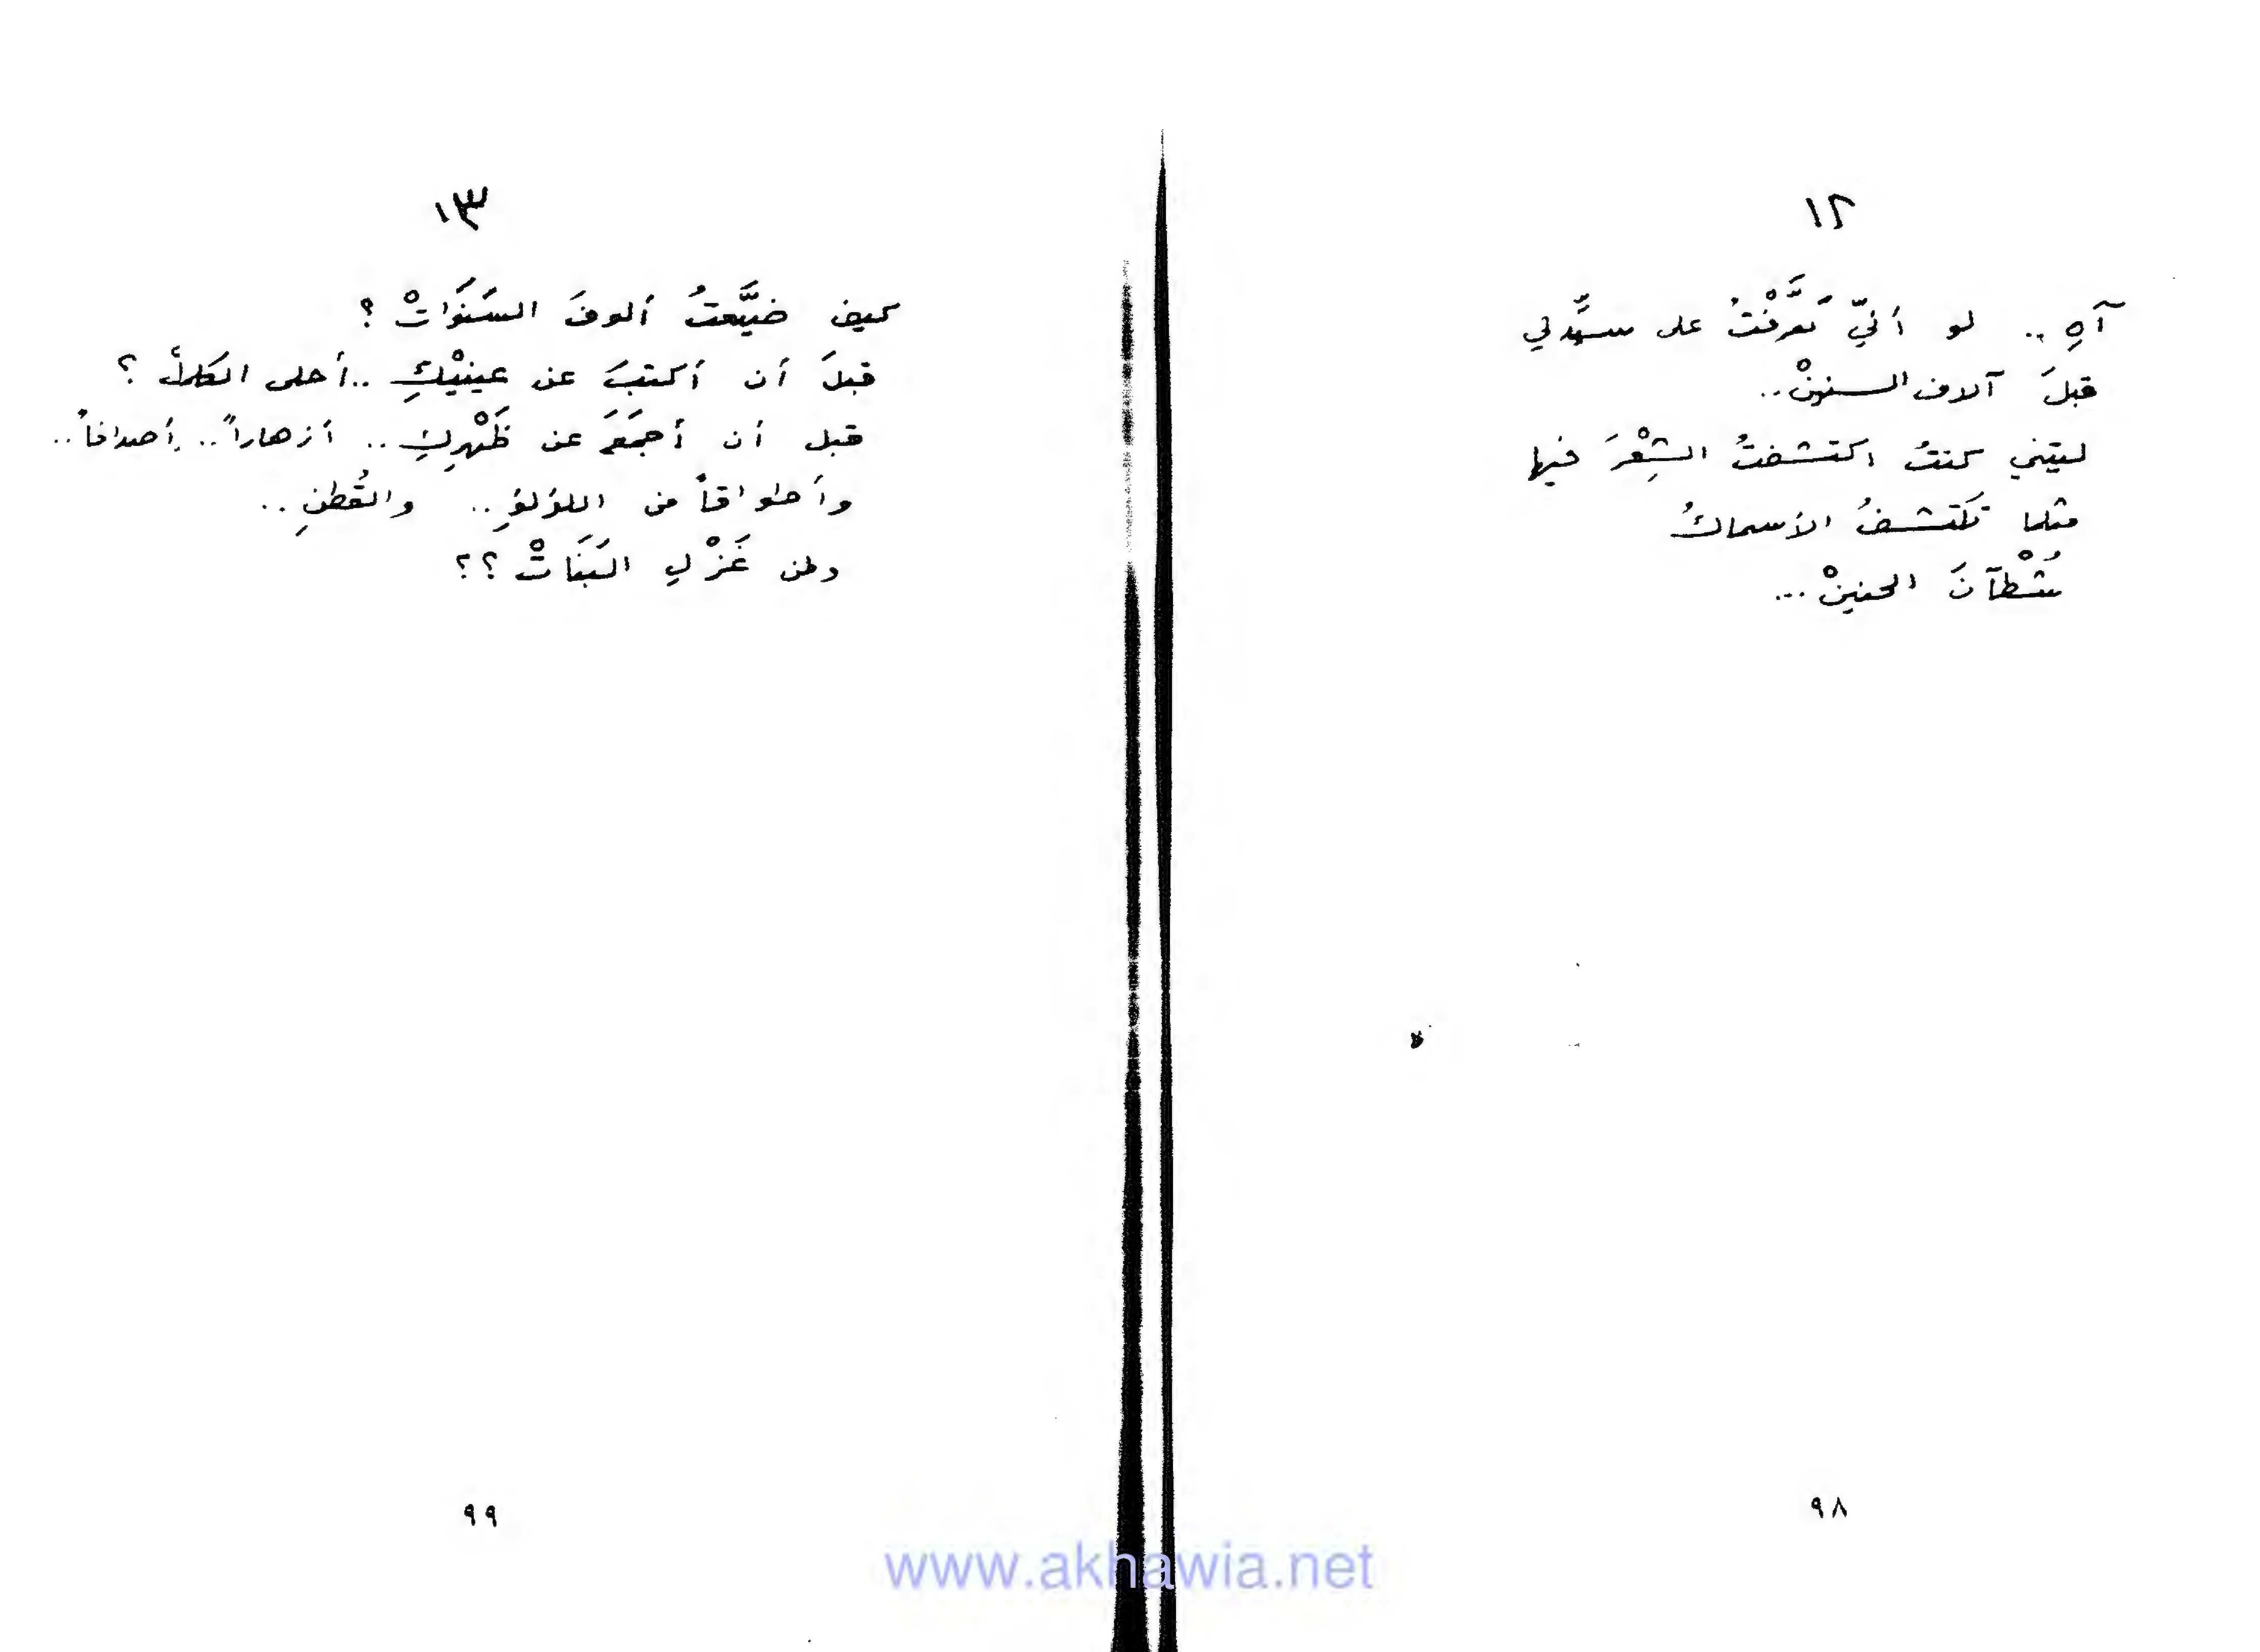 ١٢
آهِ .. لو أنّي تَعرَّفْتُ على سيّدتي
قبلَ آلاف السنينْ ..
ليتني كنتُ اكتشفتُ الشِعْرَ فيها
مثلما تَكتشفُ الأسماكُ
شُطْآنَ الحنينْ ...
٩٨
١٣
كيف ضيَّعتُ ألوفَ السَنَوَاتْ ؟
قبلَ أن أكتبَ عن عينيْكِ .. أحلى الكلامْ ؟
قبل أن أجمَعَ عن ظَهْرِكِ .. أزهاراً .. أصدافاً ..
وأطواقاً من اللؤلؤِ .. والقُطنِ ..
ومن غَزْلِ البَنَاتْ ؟؟
٩٩
www.akhawia.net